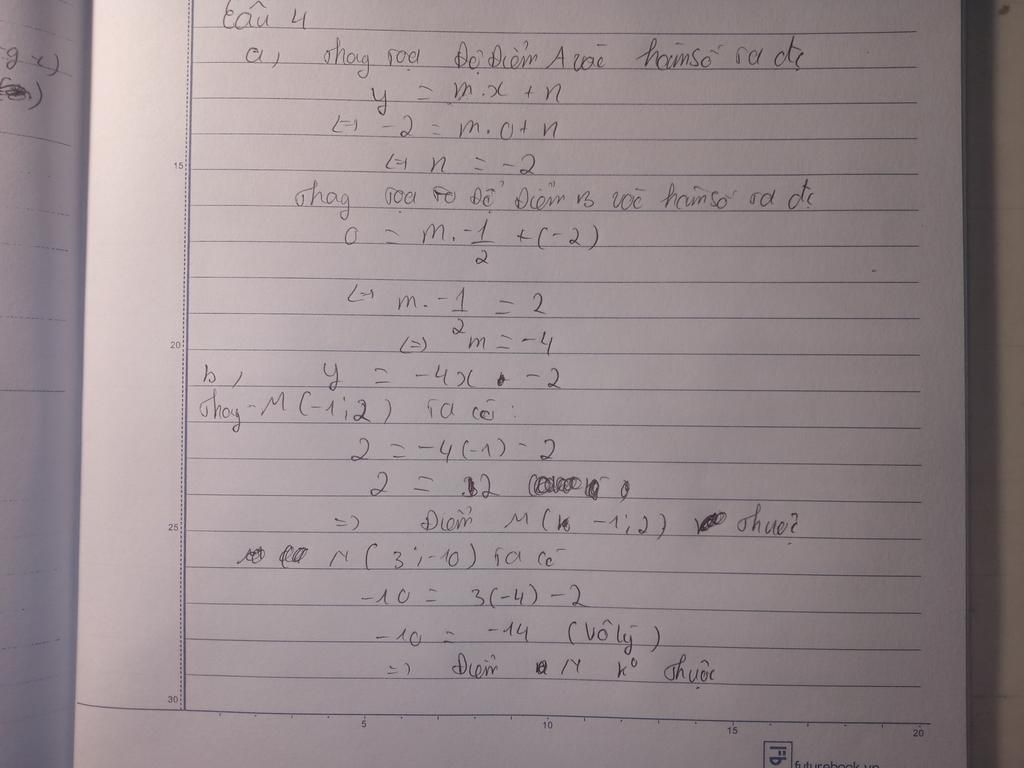 Câu 4
a, Thay toạ Độ Điểm A vào hàm số ta đc
y = m.x + n
<=> -2 = m.0 + n
<=> n = -2
Thay toạ Độ Điểm B vào hàm số ta đc
0 = m.-1/2 + (-2)
<=> m.-1/2 = 2
<=> m = -4
b, y = -4x -2
Thay M(-1;2) ta có:
2 = -4(-1) - 2
2 = 2
=> Điểm M(-1;2) Thuộc
N(3;-10) ta có
-10 = 3(-4) -2
-10 = -14 (Vô lý)
=> Điểm N k⁰ Thuộc
g x)
)
15
20
25
30
5 10 15 20
futurebook.vn